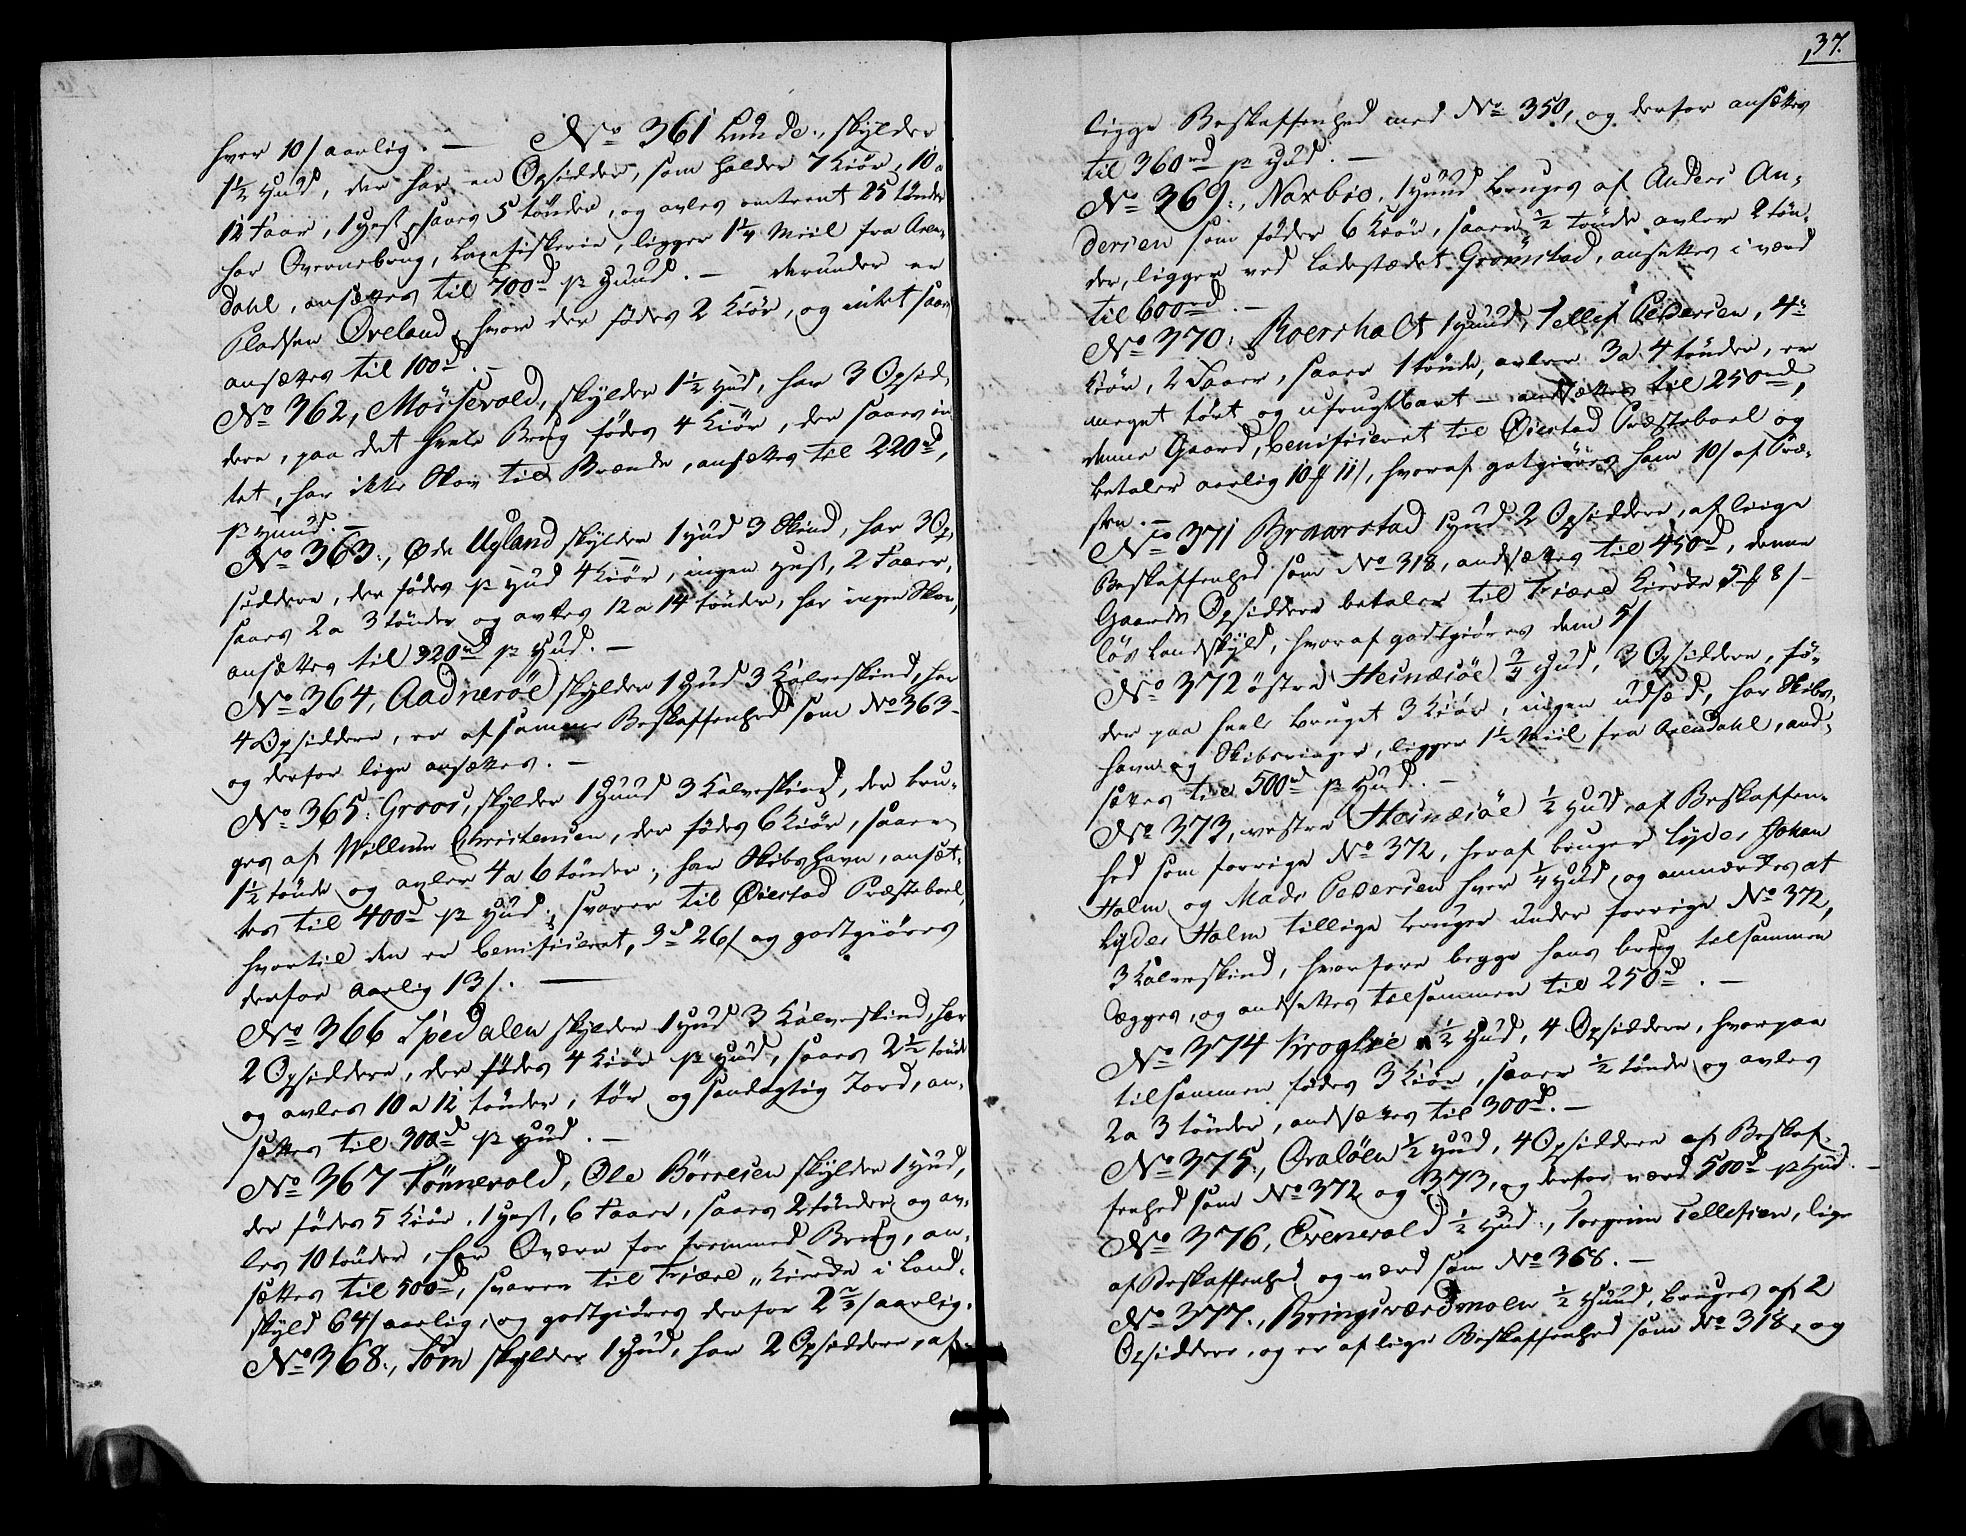 hver 10/ aarlig. — No 361 Lunde, skylder
1½ Hud, der har en Opsidder, som holder 7 Kiør, 10 a
12 Faar, 1 Hest, saaes 5 tønder, og avles omtrent 25 tønder
har Overnebrug, Laxefiskerie, ligger 1¼ Miil fra Aren-
dahl, ansættes til 700rd pr Huud. — derunder er
Pladsen Øveland, hvor der fødes 2 Kiør, og intet saaes
ansættes til 100rd. —
No 362, Morsevold, skylder 1½ Hud, har 3 Opsid-
dere, paa det heele Brug fødes 4 Kiør, der saaes in
tet, har ikke Skov til Brænde, ansættes til 220rd,
pr Huud. —
No 363., Øde Ugland skylder 1 Hud 3 Skind, har 3 Op
siddere, der fødes pr Hud 4 Kiør, ingen Hest, 2 Faaer,
saaes 2 a 3 tønder og avles 12 a 14 tønder, har ingen Skov,
ansættes til 320rd pr Hud. —
No 364, Aadnerøe skylder 1 Hud 3 Kalveskind, har
4 Opsiddere, er af samme Beskaffenhed som No 363
og derfor lige ansættes. —
No 365. Groos, skylder 1 Huud 3 Kalveskind, der bru-
ges af Willum Christensen, der fødes 6 Kiør, saaer
1½ tønde og avler 4 a 6 tønder, har Skibshavn, ansæt-
tes til 400rd pr Hud, svarer til Øiestad Præsteboel,
hvortil den er benificeret, 3rd 26/ og godtgiøres
derfor aarlig 13/. —
No 366 Spedalen skylder 1 Hud 3 Kalveskind, har
2 Opsiddere, der fødes 4 Kiør pr Hud, saaes 2½ tønde
og avles 10 a 12 tønder, tør og sandagtig Jord, an-
sættes til 300rd pr Hud. —
No 367 Tønnevold, Ole Børresen skylder 1 Hud,
der fødes 5 Kiør, 1 Hest, 6 Faaer, saaes 2 tønder og av-
les 10 tønder, har Qværn for fremmed Brug, an-
sættes til 500rd, svarer til Fiære Kierke i Land-
skyld 64/ aarlig, og godtgiøres derfor 2⅔/ aarlig.
No 368., Søm skylder 1 Hud, har 2 Opsiddere, af
37.
lige Beskaffenhed med No 350, og derfor ansættes
til 360rd pr Hud. —
No 369., Naxbio. 1 Huud bruges af Anders An-
dersen som føder 6 Kiør, saaer ½ tønde avler 2 tøn-
der, ligger ved Ladestædet Grømstad, ansættes i værd
til 600rd. —
No 370, Roersholt 1 Huud, Tellef Pedersen, 4
Kiør, 2 Faaer, saaer 1 tønde, avler 3 a 4 tønder, er
meget tørt og ufrugtbart — ansættes til 250rd,
denne Gaard, benificeret til Øiestad Præsteboel og
betaler aarlig 10 ƒ 11/, hvoraf gotgiøres ham 10/ af Præ-
sten. —
No 371 Braarstad 1 Hud 2 Opsiddere, af liige
Beskaffenhed som No 318, andsættes til 450rd, denne
Gaards Opsiddere betaler til Fiære Kierke 5 ƒ 8/ —
løs Landskyld, hvoraf godtgiøres dem 5/
No 372 østre Heinæsøe ¾ Hud, 3 Opsiddere, fø-
der paa heele bruget 3 Kiør, ingen udsæd, har Skibs-
havn og Skibsringer, ligger 1½ Miil fra Arendahl, and-
sættes til 500rd pr Hud. —
No 373, vestre Heinæsøe ½ Hud af Beskaffen-
hed som forrige No 372, heraf bruger Lyder Johan
Holm og Mads Pedersen hver ¼ Hud, og anmærkes at
Lyder Holm tillige bruger under forrige No 372,
3 Kalveskind, hvorfore begge hans brug tilsammen
lægges, og andsættes tilsammen til 250rd. —
No 374 Krogtie ½ Hud, 4 Opsiddere, hvorpaa
tilsammen fødes 3 Kiør, saaer ½ tønde og avles
2 a 3 tønder, andsættes til 300rd. —
No 375., Qvaløen ½ Hud, 4 Opsiddere af Beskaf-
fenhed som No 372 og 373, og derfor værd 500rd pr Hud. —
No 376, Evenvold ½ Hud., Torgrim Tellefsen, lige
af Beskaffenhed og værd som No 368. —
No 377., Bringsværdmoen ½ Huud, bruges af 2
Opsiddere, og er af lige Beskaffenhed som No 318, og